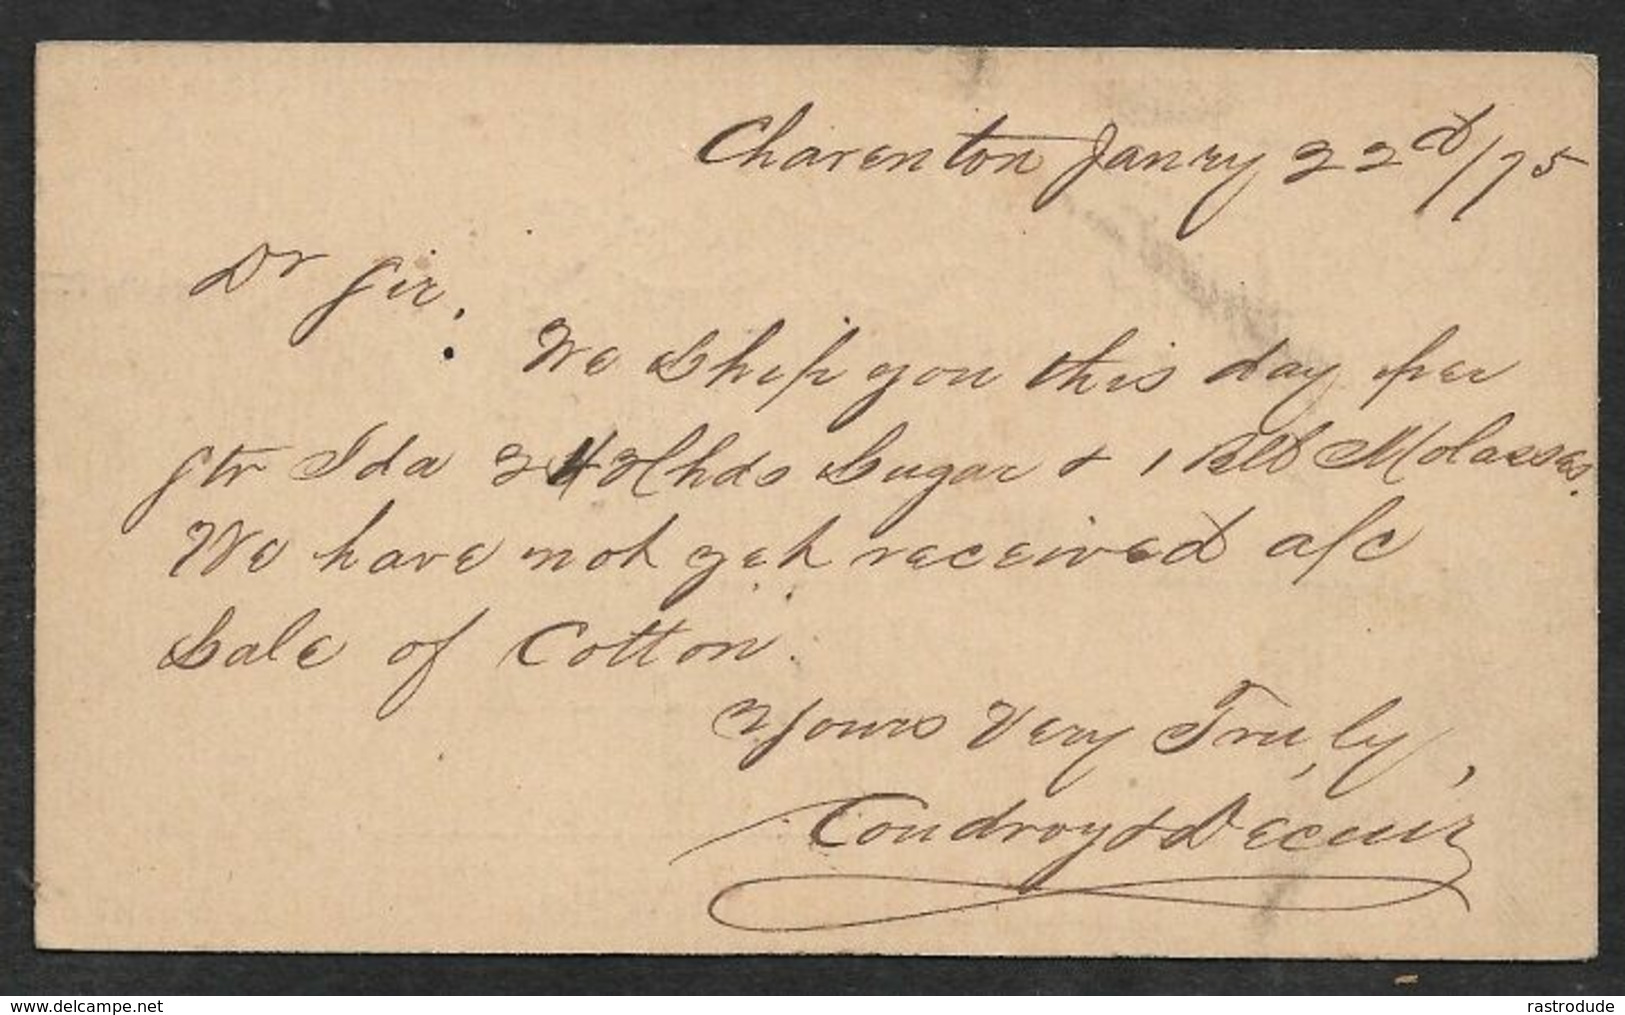 Charenton Janry 22d/75
Dr Sir,
We Ship you this day per
Str Ida 24 Hhds Sugar & 1 Bbl Molasses.
We have not yet received a/c
Sale of Cotton.
Yours Very Truly,
Coudroy & Decuir
www.delcampe.net
rastrodude